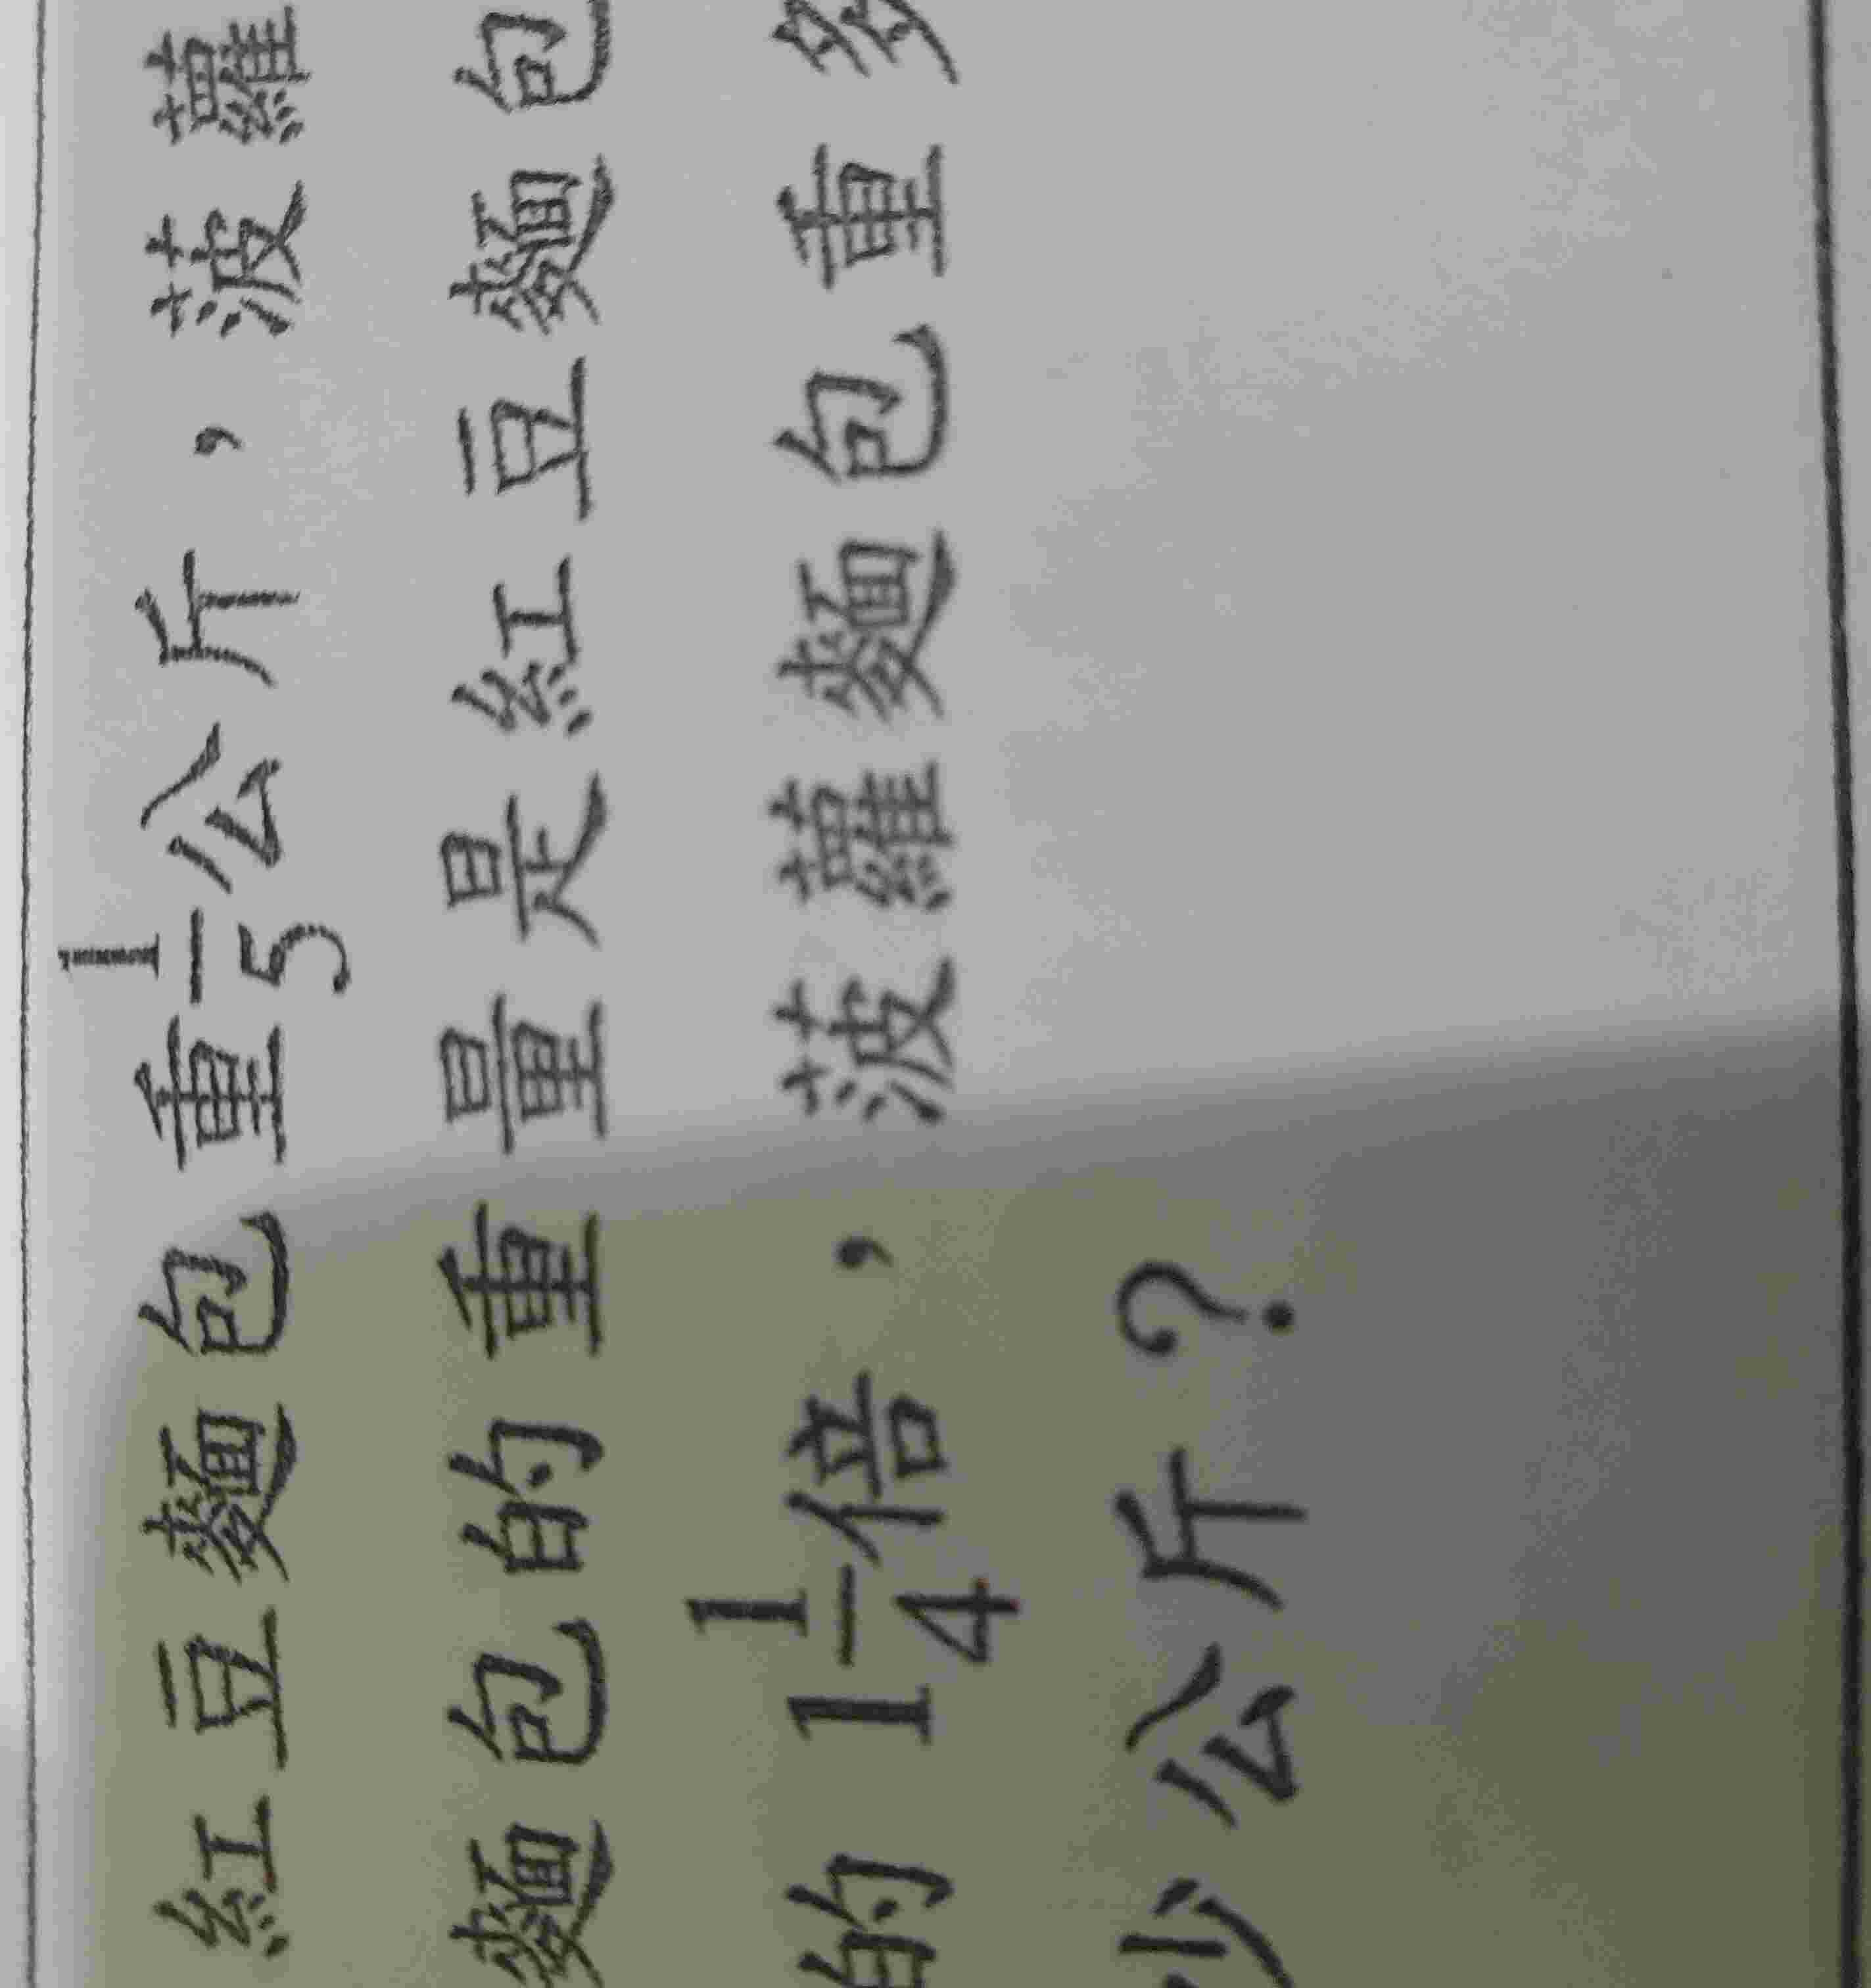 紅豆麵包重1/5公斤，菠蘿
麵包的重量是紅豆麵包
的 1 1/4倍，菠蘿麵包重多
少公斤？